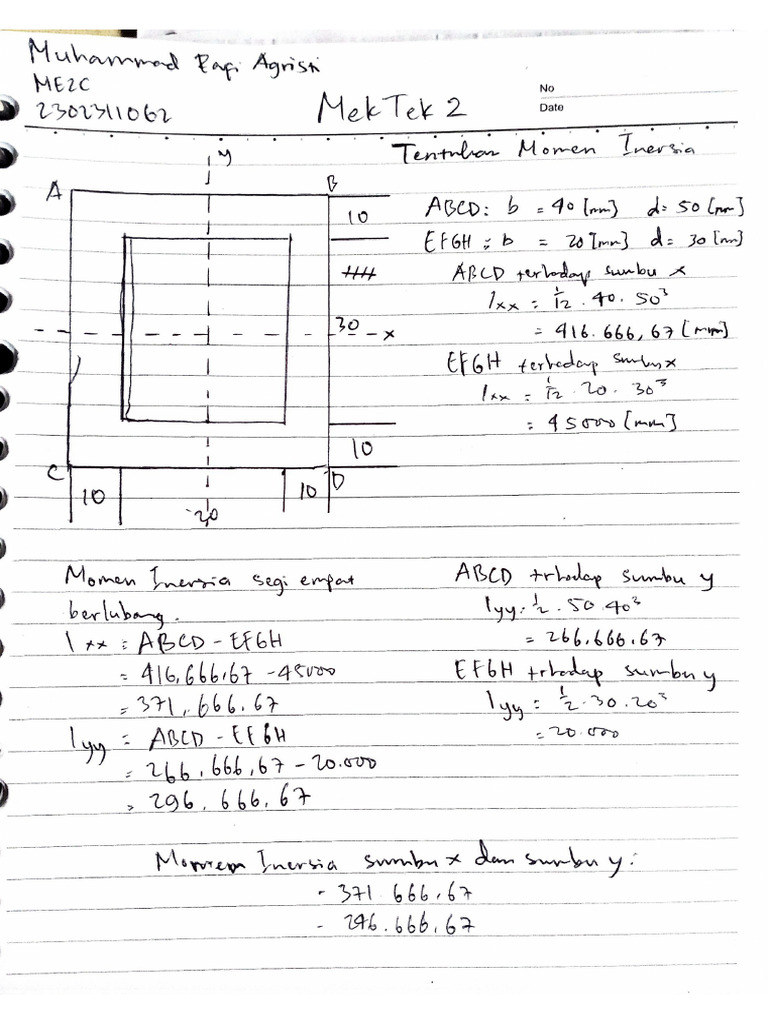 Muhammad Rafi Agristi
ME2C
2302311062
MekTek 2
No
Date
Tentukan Momen Inersia
y
A
B
10
30
x
10
C
D
10
20
10
ABCD : b = 40 [mm] d = 50 [mm]
EFGH : b = 20 [mm] d = 30 [mm]
ABCD terhadap sumbu x
Ixx = 1/12 . 40 . 50³
= 416.666,67 [mm]
EFGH terhadap sumbu x
Ixx = 1/12 . 20 . 30³
= 45000 [mm]
Momen Inersia segi empat
berlubang.
Ixx = ABCD - EFGH
= 416,666,67 - 45000
= 371,666,67
Iyy = ABCD - EFGH
= 266,666,67 - 20.000
= 296,666,67
ABCD trhadap sumbu y
Iyy = 1/2 . 50 . 40³
= 266.666,67
EFGH trhadap sumbu y
Iyy = 1/2 . 30 . 20³
= 20.000
Momen Inersia sumbu x dan sumbu y :
- 371.666,67
- 296.666,67